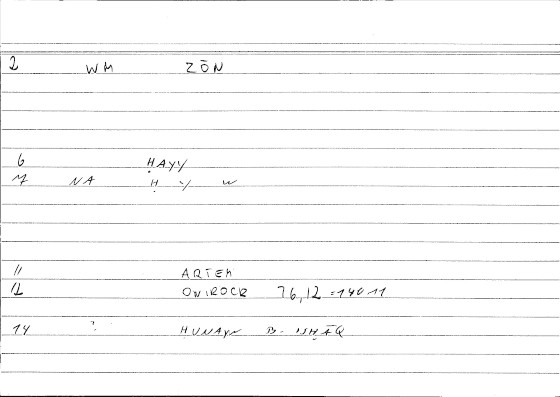 2 WM ZŌN
6 ḤAYY
7 NA Ḥ Y W
11 ARTEM
12 ONIROCR 76,12 = 140 11
14 ? ḤUNAYN B. ISḤĀQ